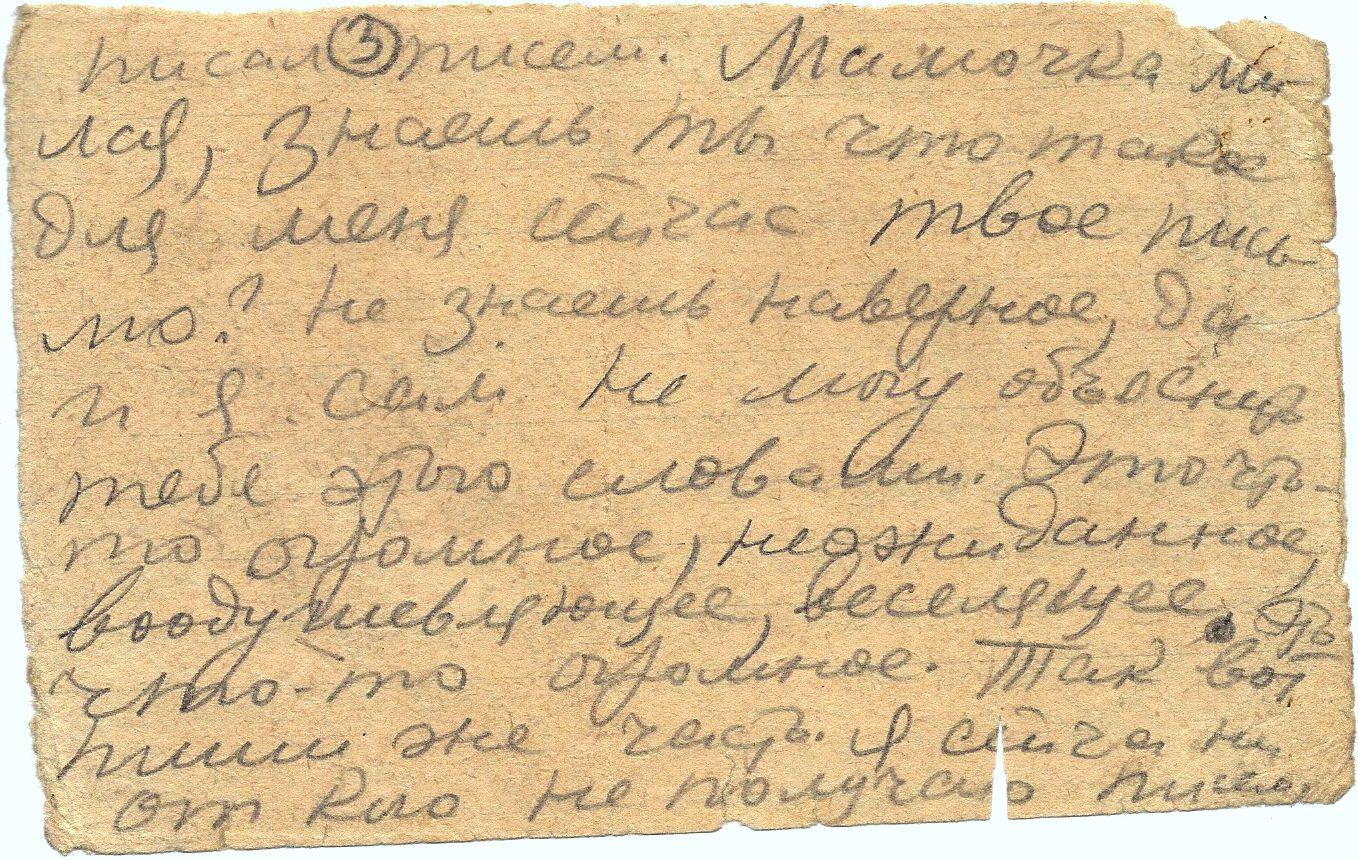 писал 3 писем. Мамочка ми-
лая, знаешь ты что такое
для меня сейчас твое пись-
мо? Не знаешь наверное, да
и я сам не могу объяснить
тебе этого словами. Это что-
то огромное, неожиданное,
воодушевляющее, веселящее, это
что-то огромное. Так вот
пиши же часто. я сейчас ни
от кого не получаю писем,